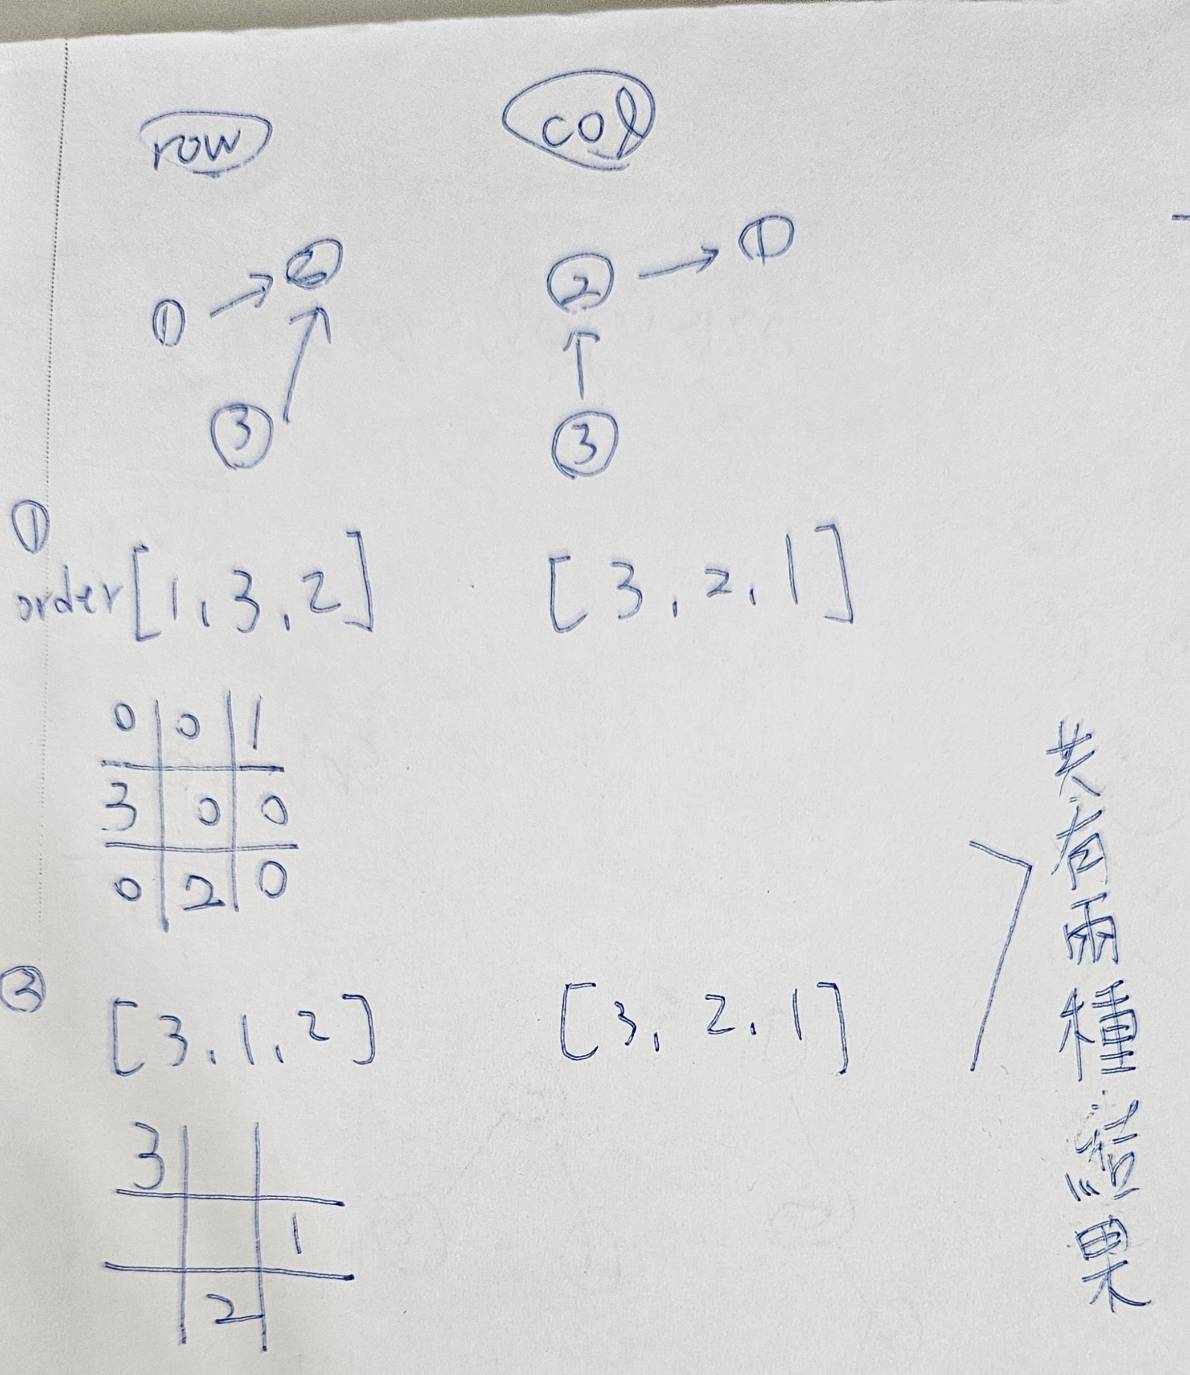 row col
① → ② ② → ①
③ ③
①
order [1, 3, 2] [3, 2, 1]
0 0 1
3 0 0
0 2 0
② [3, 1, 2] [3, 2, 1]
3
1
2
共有兩種結果